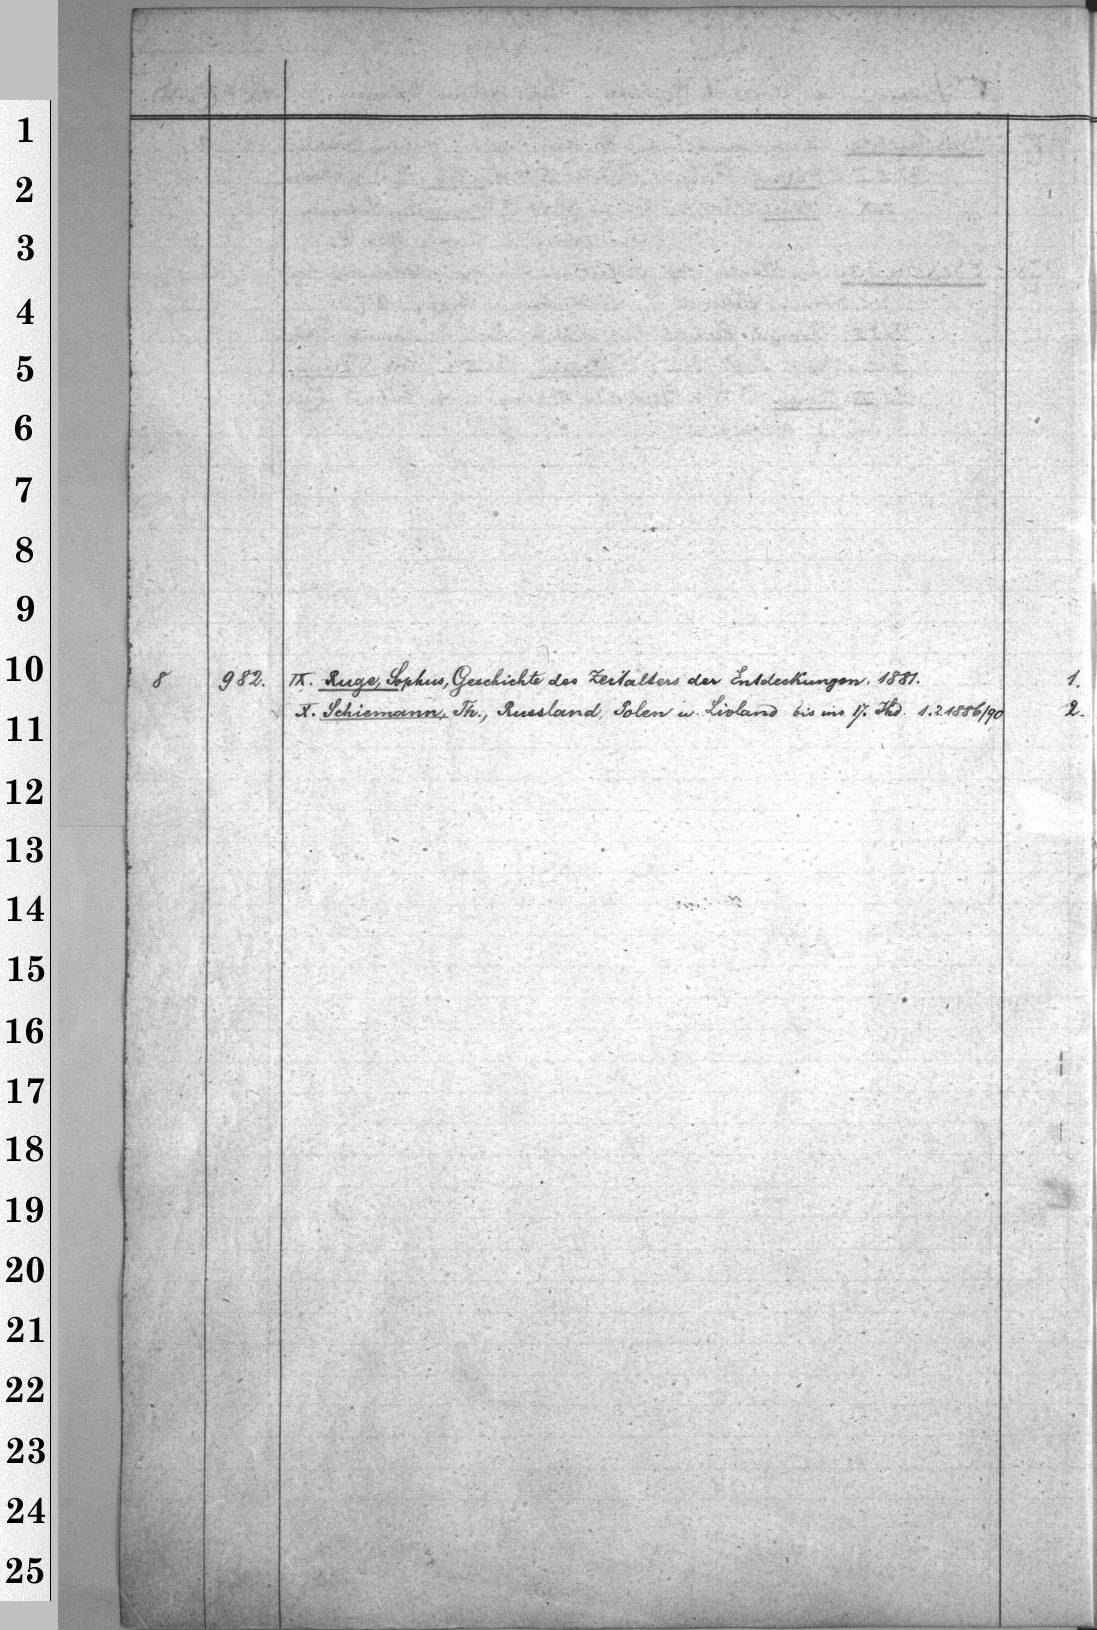 1
2
3
4
5
6
7
8
9
10
8 982. IX. Ruge, Sophus, Geschichte des Zeitalters der Entdeckungen. 1881. 1.
X. Schiemann, Th., Russland, Polen u. Livland bis ins 17. Jhd. 1.2.1886/90 2.
11
12
13
14
15
16
17
18
19
20
21
22
23
24
25